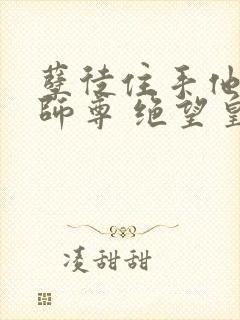 孽徒住手他
师尊 绝望皇
凌甜甜